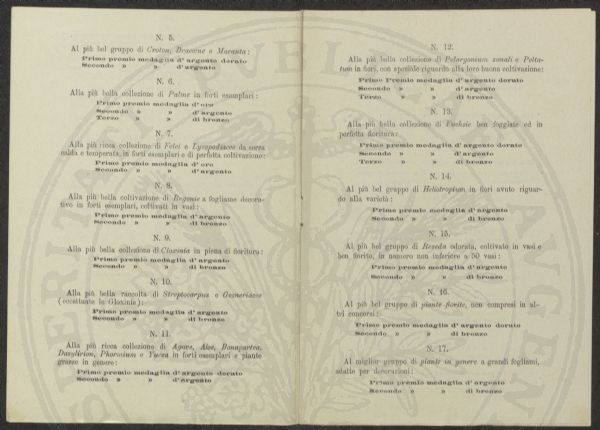 N. 5.
Al più bel gruppo di Croton, Dracene e Maranta:
Primo premio medaglia d'argento dorato
Secondo » » d'argento
N. 6.
Alla più bella collezione di Palme in forti esemplari:
Primo premio medaglia d'oro
Secondo » » d'argento
Terzo » » di bronzo
N. 7.
Alla più ricca collezione di Felci e Lycopodiacee da serra
calda e temperata, in forti esemplari e di perfetta coltivazione:
Primo premio medaglia d'oro
Secondo » » d'argento
N. 8.
Alla più bella coltivazione di Begonie a fogliame decora-
tivo in forti esemplari, coltivati in vasi:
Primo premio medaglia d'argento
Secondo » » di bronzo
N. 9.
Alla più bella collezione di Gloxinia in piena di fioritura:
Primo premio medaglia d'argento
Secondo » » di bronzo
N. 10.
Alla più bella raccolta di Streptocarpus e Gesneriacee
(eccettuate le Gloxinie):
Primo premio medaglia d'argento
Secondo » » di bronzo
N. 11.
Alla più ricca collezione di Agave, Aloe, Bonapartea,
Dasylirion, Phormium e Yucca in forti esemplari e piante
grasse in genere:
Primo premio medaglia d'argento dorato
Secondo » » d'argento
N. 12.
Alla più bella collezione di Pelargonium zonali e Pelta-
tum in fiori, con speciale riguardo alla loro buona coltivazione:
Primo Premio medaglia d'argento dorato
Secondo » » d'argento
Terzo » » di bronzo
N. 13.
Alla più bella collezione di Fuchsie ben foggiate ed in
perfetta fioritura:
Primo premio medaglia d'argento dorato
Secondo » » d'argento
Terzo » » di bronzo
N. 14.
Al più bel gruppo di Heliotropium in fiori avuto riguar-
do alla varietà:
Primo premio medaglia d'argento
Secondo » » di bronzo
N. 15.
Al più bel gruppo di Reseda odorata, coltivato in vasi e
ben fiorito, in numero non inferiore a 50 vasi:
Primo premio medaglia d'argento
Secondo » » di bronzo
N. 16.
Al più bel gruppo di piante fiorite, non compresi in al-
tri concorsi:
Primo premio medaglia d'argento dorato
Secondo » » di bronzo
N. 17.
Al miglior gruppo di piante in genere a grandi fogliami,
adatte per decorazioni:
Primo premio medaglia d'argento
Secondo » » di bronzo